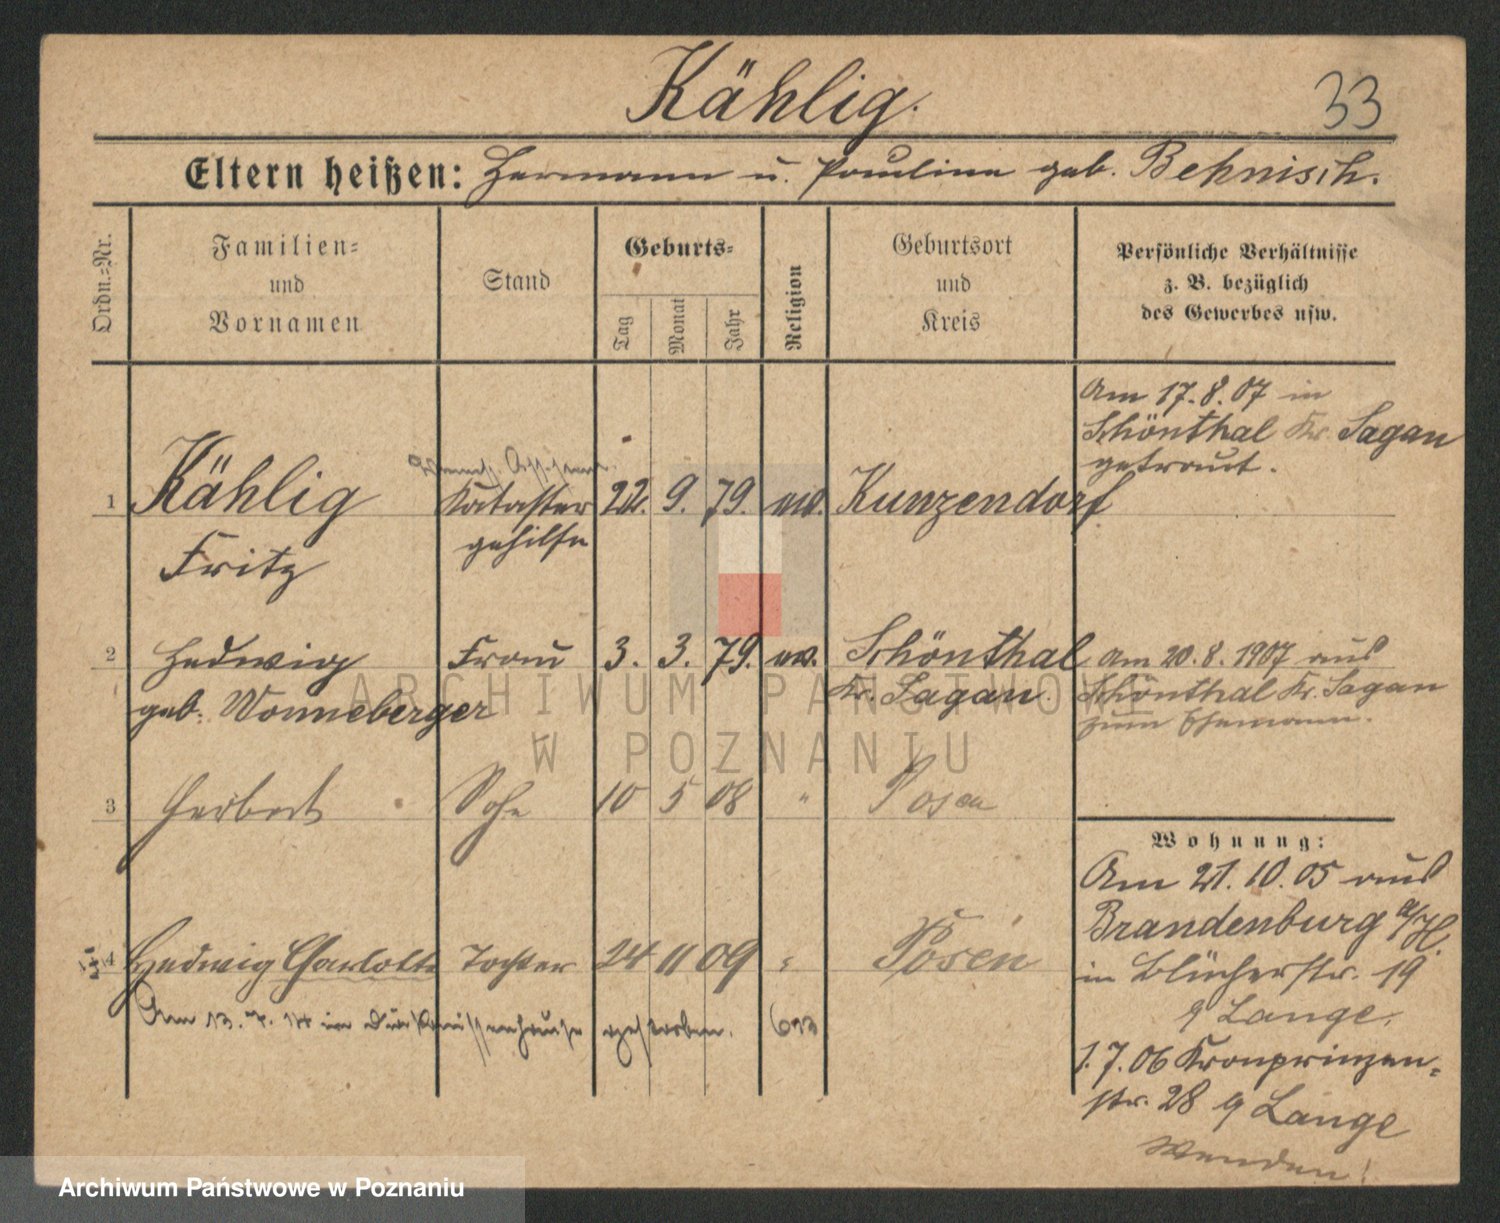 Kählig.
33
Eltern heißen: Hermann u. Pauline geb. Behnisch.
Ordn.-Nr.
Familien-
und
Vornamen
Stand
Geburts-
Tag
Monat
Jahr
Religion
Geburtsort
und
Kreis
Persönliche Verhältnisse
z. B. bezüglich
des Gewerbes usw.
Am 17.8.07 in
Schönthal Kr. Sagan
getraut.
1 Kählig Kataster 22. 9. 79. ev. Kunzendorf
Fritz gehilfe
2 Hedwig Frau 3. 3. 79. ev. Schönthal
geb. Wonneberger Kr. Sagan
am 20.8.1907 aus
Schönthal Kr. Sagan
zum Ehemann.
3 Herbert Sohn 10 5 08 " Posen
4 Hedwig Charlotte Tochter 24 11 09 " Posen
Am 13. 7. 14 im Diakonissenhause gestorben.
Wohnung:
Am 21.10.05 aus
Brandenburg a/H.
in Blücherstr. 19
b/ Lange.
1.7.06 Kronprinzen-
str. 28 b/ Lange
Wenden!
ARCHIWUM PAŃSTWOWE
W POZNANIU
Archiwum Państwowe w Poznaniu